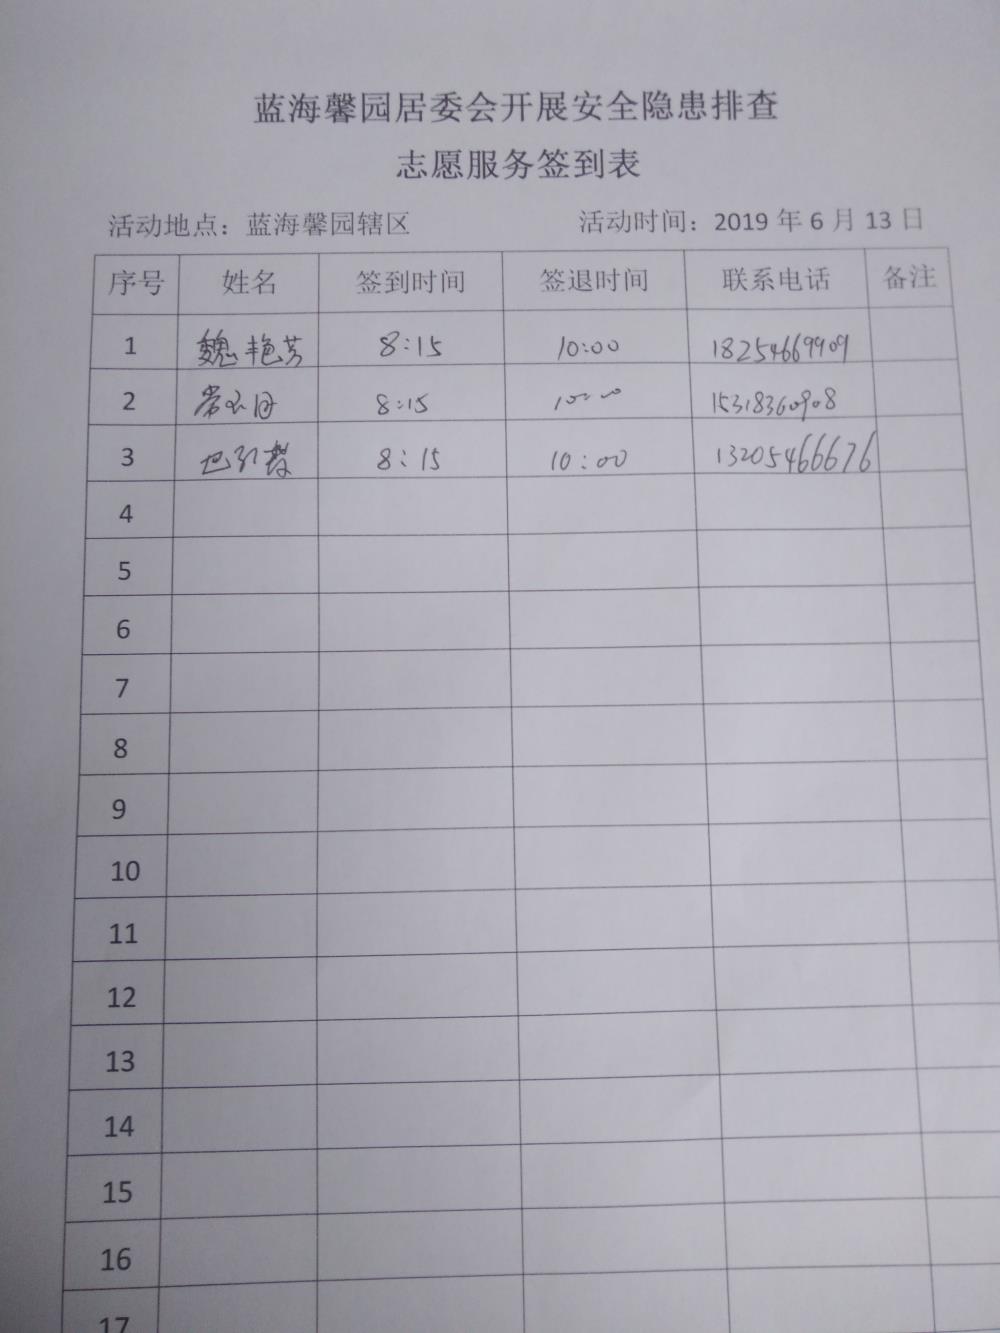 蓝海馨园居委会开展安全隐患排查
志愿服务签到表
活动地点：蓝海馨园辖区 活动时间：2019 年 6 月 13 日
序号 姓名 签到时间 签退时间 联系电话 备注
1 魏艳芳 8:15 10:00 18254669909
2 8:15 10:00 15318360908
3 8:15 10:00 13205466676
4
5
6
7
8
9
10
11
12
13
14
15
16
17